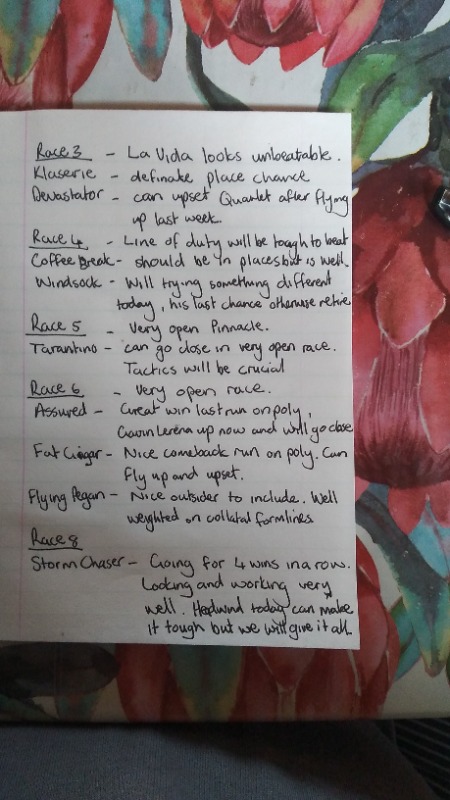 Race 3 - La Vida looks unbeatable.
Klaserie - definate place chance
Devastator - can upset Quartet after flying
up last week.
Race 4 - Line of duty will be tough to beat
Coffee Break - should be in places but is well.
Windsock - Will trying something different
today, his last chance otherwise retire
Race 5 - Very open Pinnacle.
Tarantino - can go close in very open race.
Tactics will be crucial
Race 6 - Very open race.
Assured - Great win last run on poly,
Gavin Lerena up now and will go close
Fat Cigar - Nice comeback run on poly. Can
fly up and upset.
Flying Pegan - Nice outsider to include. Well
weighted on collatal formlines
Race 8
Storm Chaser - Going for 4 wins in a row.
Looking and working very
well. Hedwind today can make
it tough but we will give it all.